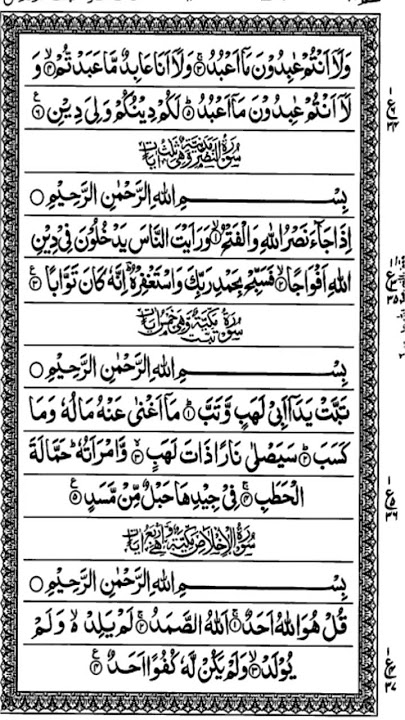 وَلَاۤ اَنْتُمْ عٰبِدُوْنَ مَاۤ اَعْبُدُ ۚ﴿۳﴾ وَلَاۤ اَنَا عَابِدٌ مَّا عَبَدْتُّمْ ۙ﴿۴﴾ وَ
لَاۤ اَنْتُمْ عٰبِدُوْنَ مَاۤ اَعْبُدُ ؕ﴿۵﴾ لَكُمْ دِيْنُكُمْ وَلِىَ دِيْنِ ﴿۶﴾
سُوْرَةُ النَّصْرِ مَدَنِيَّةٌ وَّهِىَ ثَلٰثُ اٰيَاتٍ
بِسْمِ اللهِ الرَّحْمٰنِ الرَّحِيْمِ ○
اِذَا جَآءَ نَصْرُ اللهِ وَالْفَتْحُ ۙ﴿۱﴾ وَرَاَيْتَ النَّاسَ يَدْخُلُوْنَ فِىْ دِيْنِ
اللهِ اَفْوَاجًا ۙ﴿۲﴾ فَسَبِّحْ بِحَمْدِ رَبِّكَ وَاسْتَغْفِرْهُ ؕ اِنَّهٗ كَانَ تَوَّابًا ﴿۳﴾
سُوْرَةُ تَبَّتْ مَكِّيَّةٌ وَّهِىَ خَمْسُ اٰيَاتٍ
بِسْمِ اللهِ الرَّحْمٰنِ الرَّحِيْمِ ○
تَبَّتْ يَدَاۤ اَبِىْ لَهَبٍ وَّتَبَّ ؕ﴿۱﴾ مَاۤ اَغْنٰى عَنْهُ مَالُهٗ وَمَا
كَسَبَ ؕ﴿۲﴾ سَيَصْلٰى نَارًا ذَاتَ لَهَبٍ ۚ﴿۳﴾ وَّامْرَاَتُهٗ ؕ حَمَّالَةَ
الْحَطَبِ ۚ﴿۴﴾ فِىْ جِيْدِهَا حَبْلٌ مِّنْ مَّسَدٍ ﴿۵﴾
سُوْرَةُ الْاِخْلَاصِ مَكِّيَّةٌ وَّهِىَ اَرْبَعُ اٰيَاتٍ
بِسْمِ اللهِ الرَّحْمٰنِ الرَّحِيْمِ ○
قُلْ هُوَ اللهُ اَحَدٌ ۚ﴿۱﴾ اَللهُ الصَّمَدُ ۚ﴿۲﴾ لَمْ يَلِدْ ۙ۬ وَلَمْ
يُوْلَدْ ۙ﴿۳﴾ وَلَمْ يَكُنْ لَّهٗ كُفُوًا اَحَدٌ ﴿۴﴾